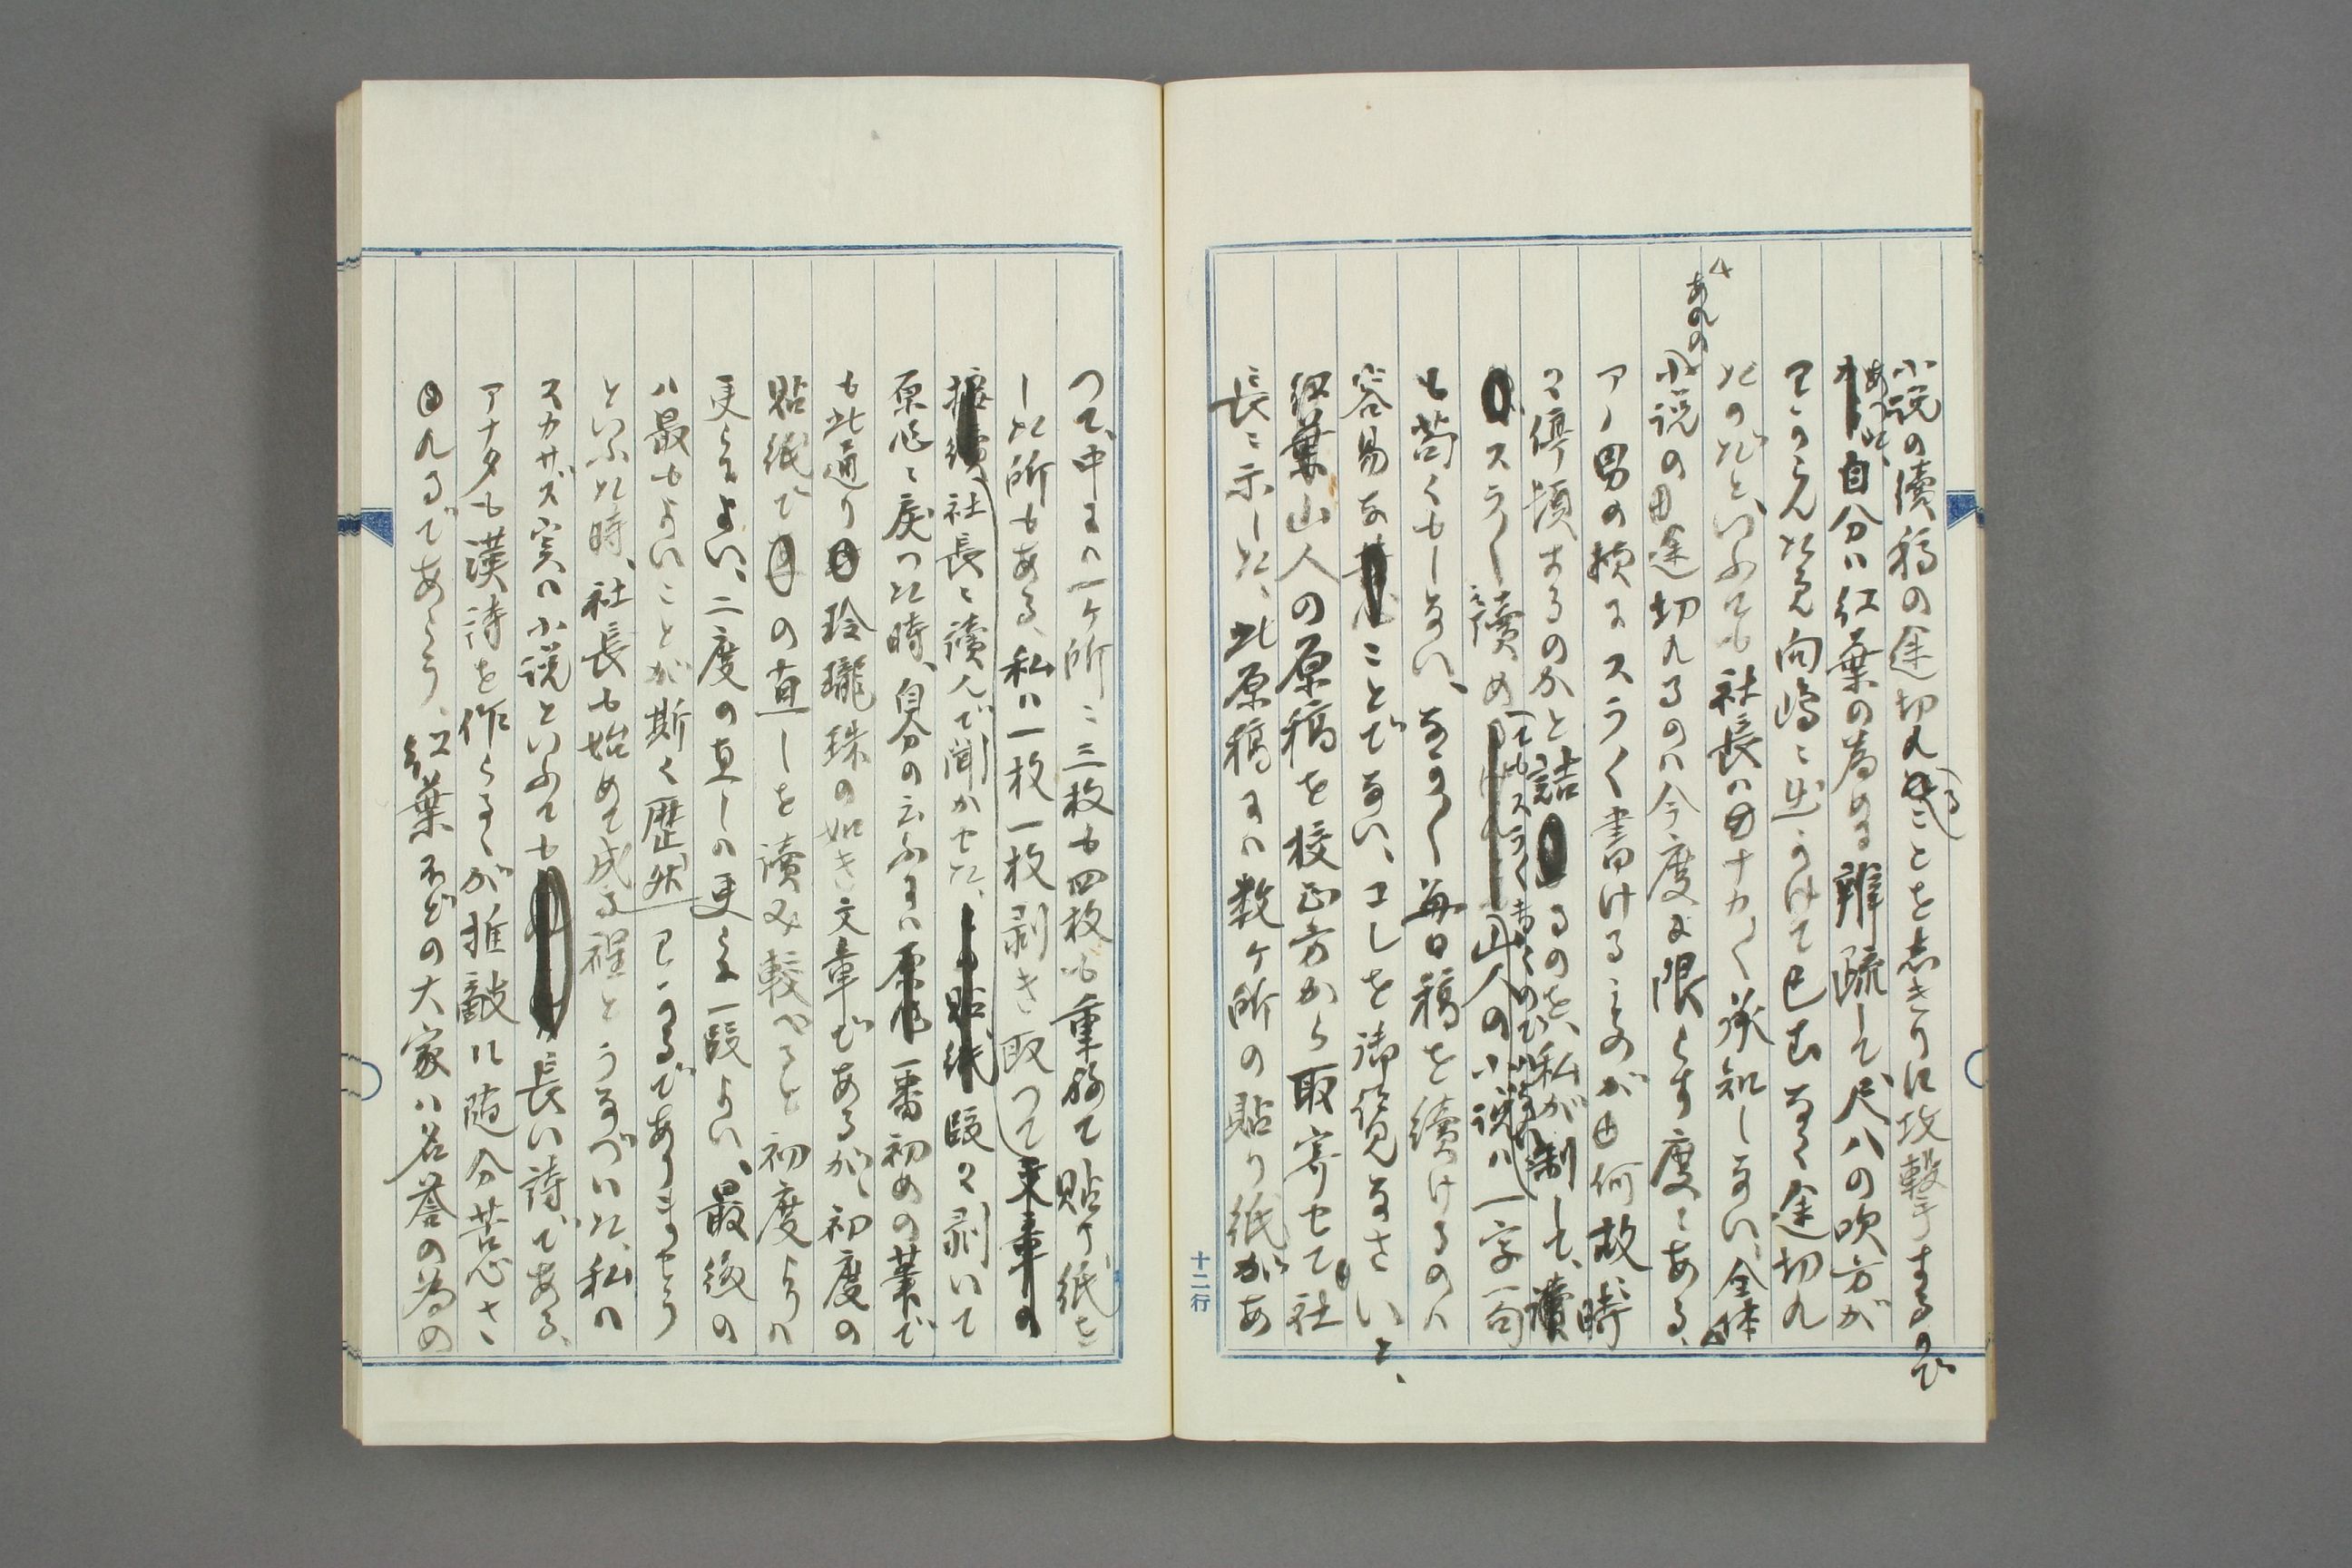 小説の續稿の途切れることを志きりに攻撃するので
あつた、自分は紅葉の為めに辯疏して尺八の吹方が
アうんた見向嶋に出うけて已むなく途切れ
たのだと、いふても社長はナカく承知しない、全体
あれの小説の途切れるのは今度に限らず度々ある、
アノ男の様にスラく書けるものが何故時
に停頓するのかと詰るのを、私が制して、讀
スラく讀めてもスラく書くのではない、山人の小説は一字一句
も苟くもしない、なかく毎日稿を續けるのは
容易なことでない、コレを御覧なさいと、
紅葉山人の原稿を校正方から取寄せて社
長に示した、此原稿には数ヶ所の貼り紙があ
つて、中には一ヶ所に三枚も四枚も重ねて貼り紙を
した所もある、私は一枚一枚剥き取つて
社長に讀んで聞かせた、段々剥いて
原作に戻つた時、自分の云ふには一番初めの筆で
も此通り玲瓏珠の如き文章であるが、初度の
貼紙での直しを讀み較べると初度よりは
更らによい、二度の直しは更らに一段よい、最後の
は最もよいことが斯く歴然でありませう
といふた時、社長も始めて成る程とうなづいた、私は
スカサズ実は小説といふても長い詩である、
アナタも漢詩を作らるゝが推敲に随分苦心さ
れるであらう、紅葉などの大家は名誉の為め
十二行